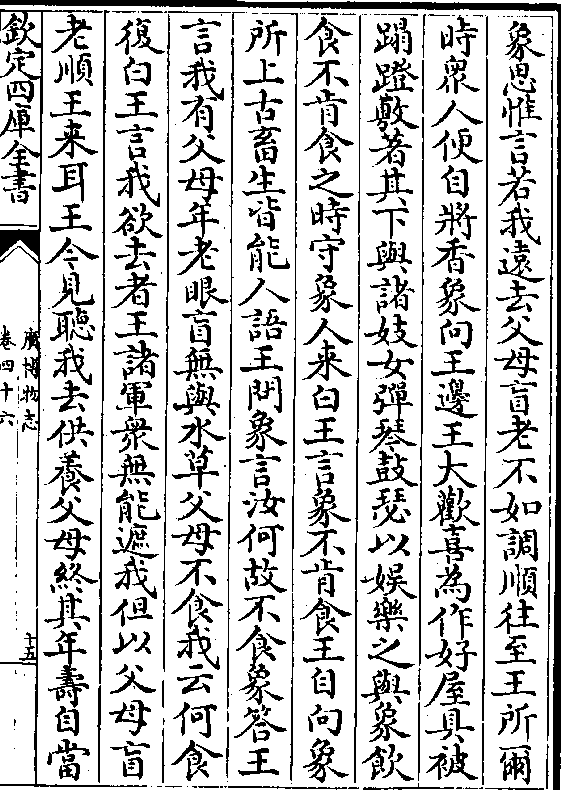 象思惟言若我遠去父母盲老不如調順往至王所爾
時衆人便自將香象向王邊王大歡喜為作好屋具被
蹋蹬敷著其下與諸妓女彈琴鼓瑟以娛樂之與象飲
食不肯食之時守象人来白王言象不肯食王自向象
所上古畜生皆能人語王問象言汝何故不食象答王
言我有父母年老眼盲無與水草父母不食我云何食
復白王言我欲去者王諸軍衆無能遮我但以父母盲
老順王来耳王今見聽我去供養父母終其年壽自當
欽定四庫全書
廣博物志
卷四十六
十五